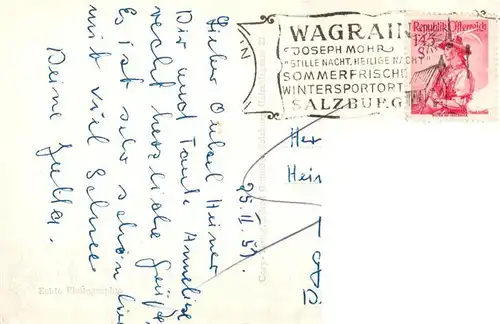 WAGRAIN
JOSEPH MOHR
"STILLE NACHT, HEILIGE NACHT"
SOMMERFRISCHE
WINTERSPORTORT
SALZBURG
Republik Österreich
1.45
S
25. II. 57.
Lieber Onkel Heiner
Dir und Tante Anneliese
recht herzliche Grüße
Es ist sehr schön hier
mit viel Schnee
Deine Jutta.
Echte Photographie
Her
Hein